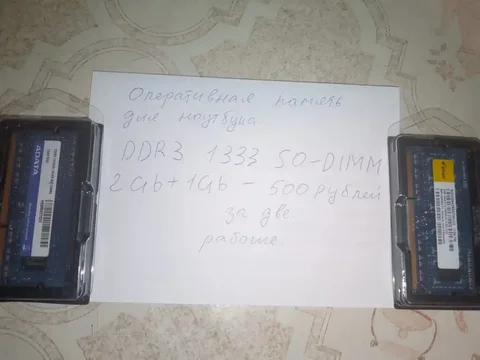 Оперативная память
для ноутбука
DDR3 1333 SO-DIMM
2Gb + 1Gb - 500 рублей
за две
рабочие.
ADATA